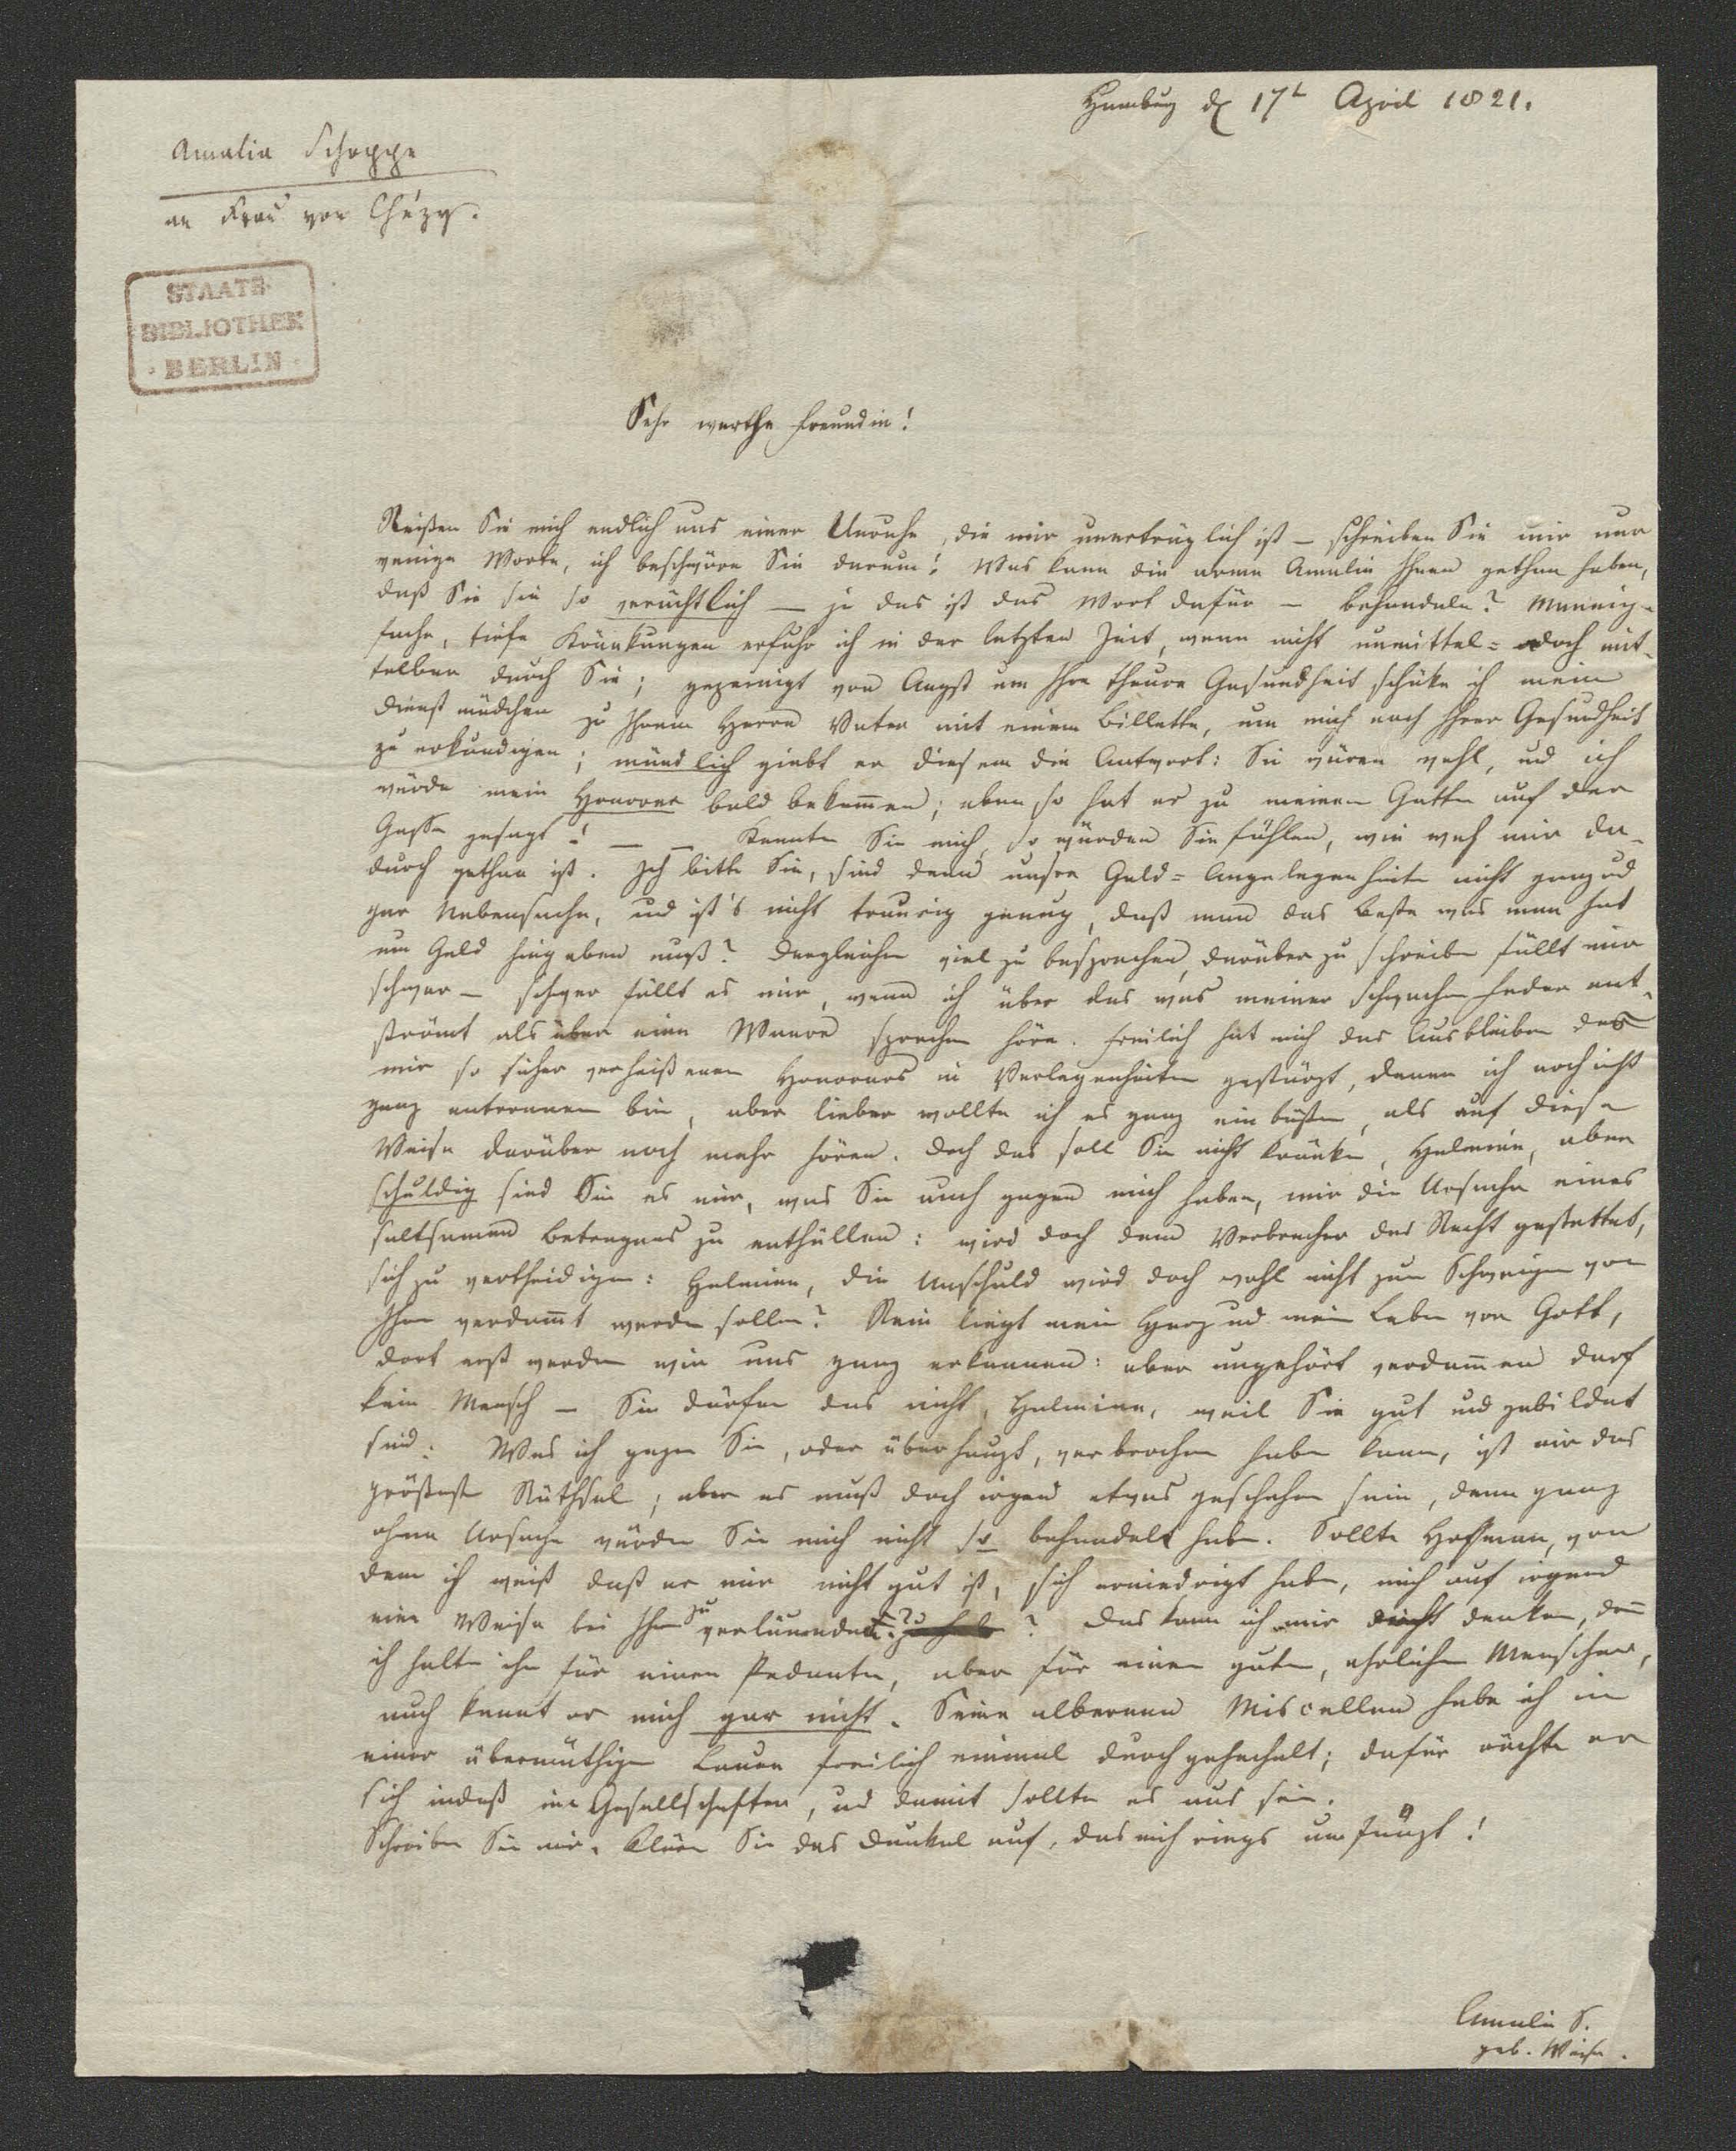 Hamburg d 17t April 1821.
Amalia Schoppe
an Frau von Chézy.
STAATS-
BIBLIOTHEK
· BERLIN ·
Sehr werthe Freundin!
Reißen Sie mich endlich aus einer Unruhe, die mir unerträglich ist — schreiben Sie mir nur
wenige Worte, ich beschwöre Sie darum! Was kann die arme Amalie Ihnen gethan haben,
daß Sie sie so verächtlich — ja das ist das Wort dafür — behandeln? Mannig-
fache, tiefe Kränkungen erfuhr ich in der letzten Zeit, wenn nicht unmittel= doch mit-
telbar durch Sie; gepeinigt von Angst um Ihre theure Gesundheit schicke ich mein
Dienstmädchen zu Ihrem Herrn Vater mit einem Billette, um mich nach Ihrer Gesundheit
zu erkundigen; mündlich giebt er diesem die Antwort: Sie wären wohl, und ich
würde mein Honorar bald bekommen; eben so hat er zu meinem Gatten auf der
Gasse gesagt! — — Kennten Sie mich, so würden Sie fühlen, wie weh mir da-
durch gethan ist. Ich bitte Sie, sind denn unsre Geld=Angelegenheiten nicht ganz und
gar Nebensache, und ist's nicht traurig genug, daß man das Beste was man hat
um Geld hingeben muß? Dergleichen viel zu besprechen, darüber zu schreiben fällt mir
schwer — schwer fällt es mir, wenn ich über das was meiner schwachen Feder ent-
strömt als über eine Waare sprechen höre. Freilich hat mich das Ausbleiben des
mir so sicher verheißenen Honorars in Verlegenheiten gestürzt, denen ich noch nicht
ganz entronnen bin, aber lieber wollte ich es ganz einbüßen, als auf diese
Weise darüber noch mehr hören. Doch das soll Sie nicht kränken, Helmine, aber
schuldig sind Sie es mir, was Sie auch gegen mich haben, mir die Ursache eines
seltsamen Betragens zu enthüllen: wird doch dem Verbrecher das Recht gestattet,
sich zu vertheidigen: Helmine, die Unschuld wird doch wohl nicht zum Schweigen von
Ihnen verdammt werden sollen? Rein liegt mein Herz und mein Leben vor Gott,
dort erst werden wir uns ganz erkennen: aber ungehört verdammen darf
kein Mensch — Sie dürfen das nicht, Helmine, weil Sie gut und gebildet
sind. Was ich gegen Sie, oder überhaupt, verbrochen haben kann, ist mir das
größeste Räthsel; aber es muß doch irgend etwas geschehen sein, denn ganz
ohne Ursache würden Sie mich nicht so behandelt haben. Sollte Hoffmann, von
dem ich weiß daß er mir nicht gut ist, sich erniedrigt haben, mich auf irgend
eine Weise bei Ihnen zu verläumden? zu haben? Das kann ich mir nicht denken, denn
ich halte ihn für einen Pedanten, aber für einen guten, ehrlichen Menschen,
auch kennt er mich gar nicht. Seine albernen Miscellen habe ich in
einer übermüthigen Laune freilich einmal durchgehechelt; dafür rächte er
sich indeß in Gesellschaften, und damit sollte es aus sein.
Schreiben Sie mir. Klären Sie das Dunkel auf, das mich rings umfängt!
Amalie S.
geb. Weise.